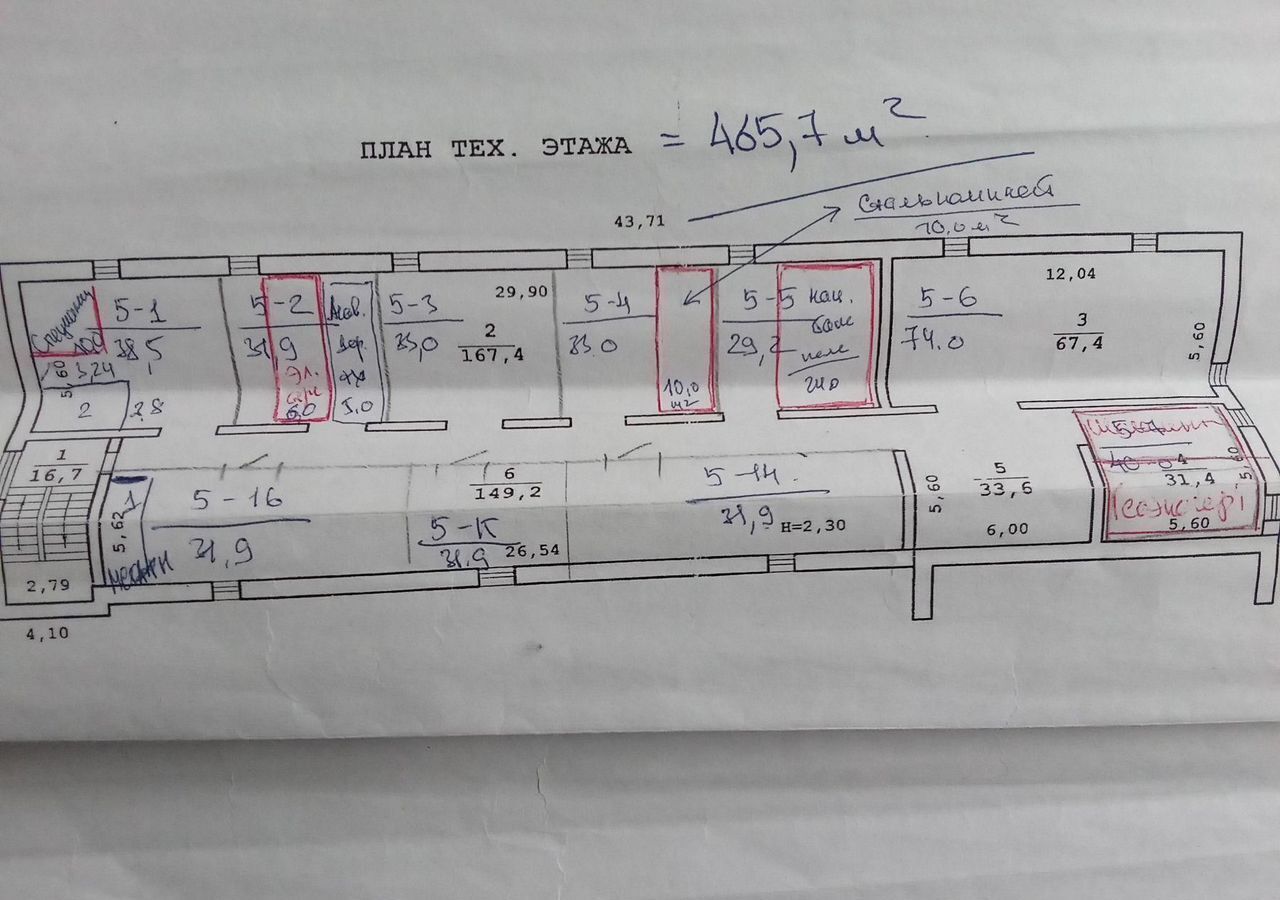 ПЛАН ТЕХ. ЭТАЖА = 465,7 м²
43,71
10,0 м²
12,04
29,90
5-1
38,5
5-2
31,9
6,0
5,0
5-3
33,0
2
167,4
5-4
33.0
10,0
м2
5-5
29,2
5-6
74.0
3
67,4
5,60
5,60
3,24
2
2,8
1
16,7
2,79
4,10
1
5,62
5-16
31,9
6
149,2
5-К
31,9
26,54
5-14
31,9
Н=2,30
5,60
5
33,6
6,00
5-7
40-0
4
31,4
5,60
5,60